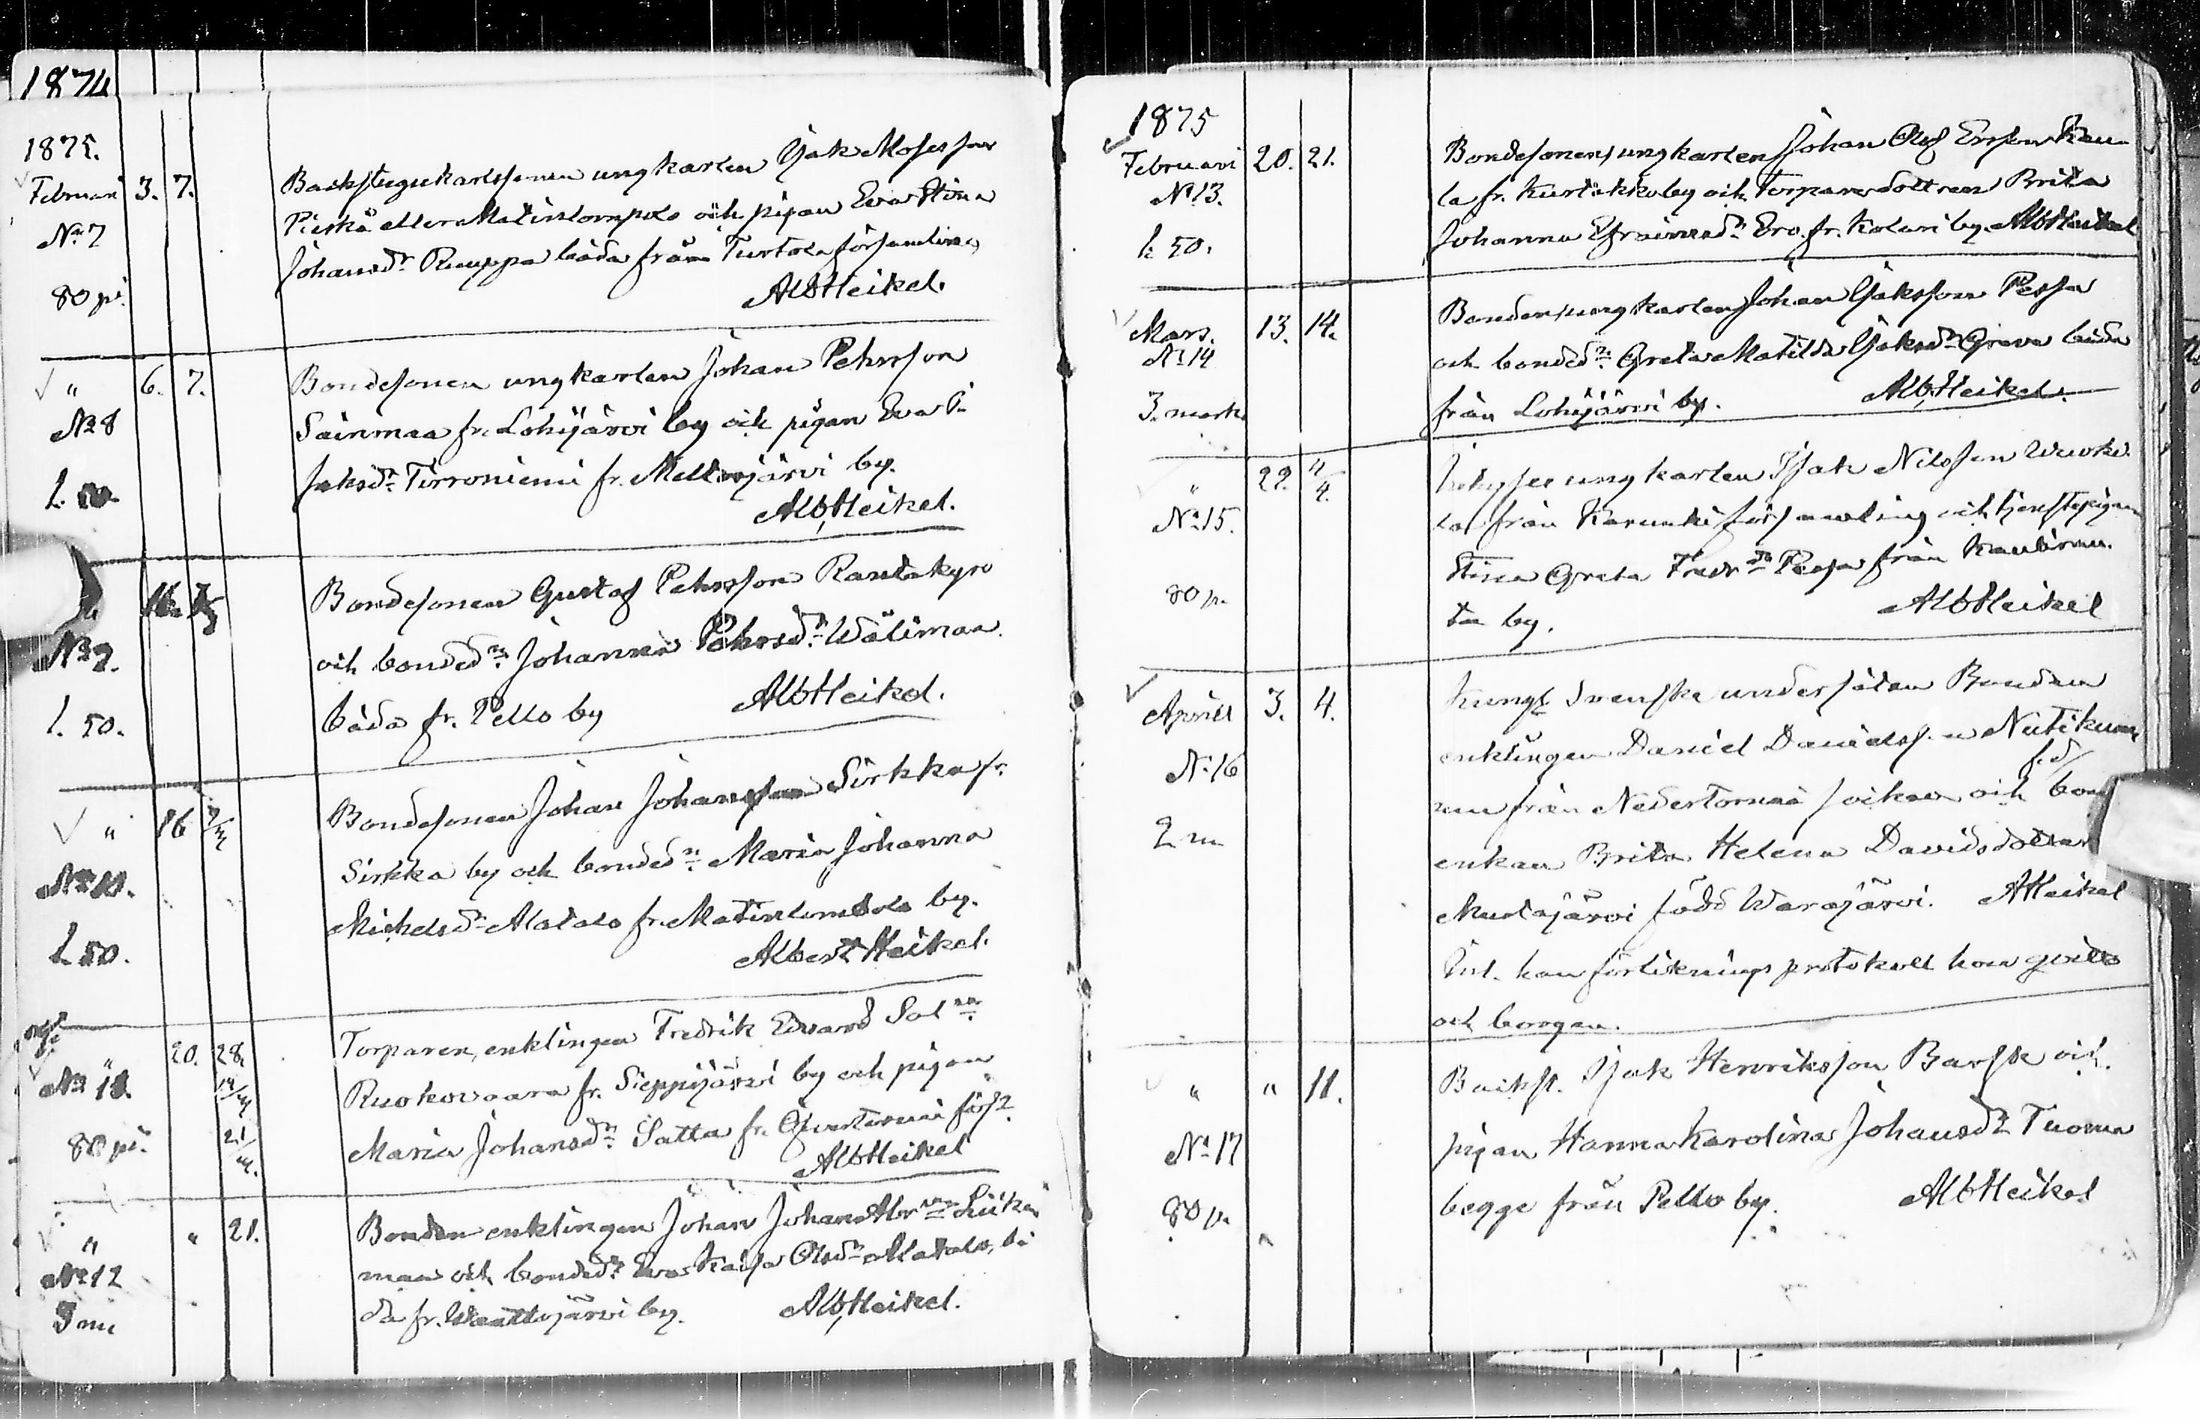 1874
1875.
Februari 3. 7. Backstugukarlssonen ungkarlen Isak Mosesson
No 7 Pieskä eller Matinlompolo och pigan Eva Stina
Johansdr Ruuppa båda från Turtola församling
80 pi. Alb Heikel.
" 6. 7. Bondesonen ungkarlen Johan Pehrsson
No 8 Sainmaa fr. Lohijärvi by och pigan Eva
Jaksdr Tirroniemi fr. Meltosjärvi by.
Alb Heikel.
16. Bondesonen Gustaf Pehrsson Rantakyro
No 9. och bondedr Johanna Pehrsdr Wälimaa
1. 50. båda fr. Pello by Alb Heikel.
" 16 Bondesonen Johan Johansson Sirkka fr.
No 10. Sirkka by och bondedr Maria Johanna
Michelsdr Alatalo fr. Matinlompolo by.
1. 50. Albert Heikel.
" 20. 28. Torparen, enklingen Fredrik Edvard
No 11. 14/ Ruokovaara fr. Sieppijärvi by och pigan
80 pi. 21/ Maria Johansdr Satta fr. Öfvertorneå förs.
Alb Heikel
" " 21. Bonden enklingen Johan Johan Abrsson Liika
No 12 maa och bondedr Eva Kaisa Olsdr Alatalo, bå
3 m da fr. Waattojärvi by. Alb Heikel.
1875
Februari 20. 21. Bondesonen, ungkarlen Johan Olof Ersson Kau
No 13. la fr. Kurtakko by och Torparedottren Brita
1. 50. Johanna Efraimsdr Ero fr. Kolari by. Alb Heikel
Mars. 13. 14. Bonden, ungkarlen Johan Isaksson Pessa
No 14 och bondedr Greta Matilda Isaksdr Grava båda
3. mark från Lohijärvi by. Alb Heikel.
" 22. 4/4. Inhyses ungkarlen Isak Nilsson
No 15. la från Karunki församling och tjenstepigan
80 p. Stina Greta Fredrdr Pessa från Kauliran
ta by. Alb Heikel
April 3. 4. Kungl Svenske undersåtan Bonden
enklingen Daniel Danielsson Nutikum
f.d/
No 16 un från Nedertorneå socken och bon
2 m enkan Brita Helena Davidsdotter
Mustajärvi född Warajärvi. A Heikel
Int. han förlikningsprotokoll hon qvitto
och borgen.
" " 11. Backst. Isak Henriksson Barsk och
No 17 pigan Hanna Karolina Johansdr Tuoma
80 p. begge från Pello by. Alb Heikel